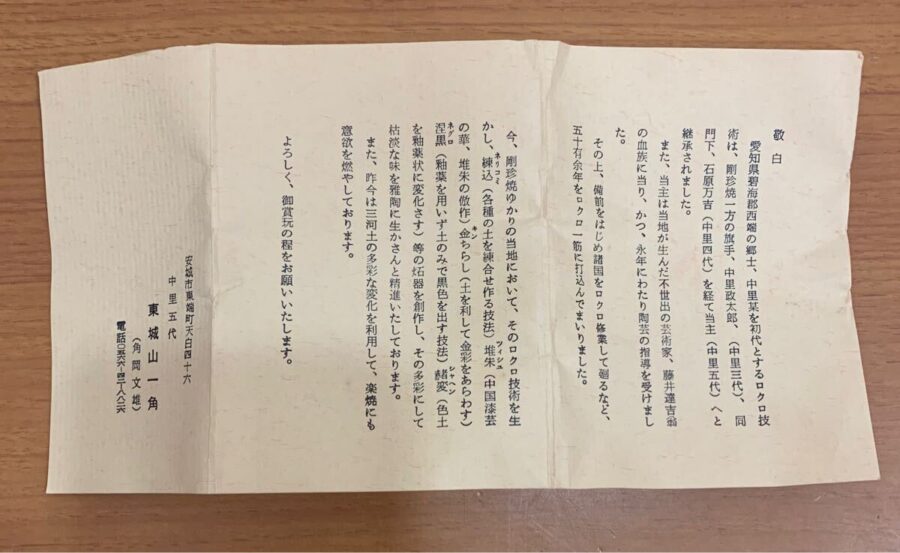 敬白
愛知県碧海郡西端の郷士、中里某を初代とするロクロ技
術は、剛珍焼一方の旗手、中里政太郎、（中里三代）、同
門下、石原万吉（中里四代）を経て当主（中里五代）へと
継承されました。
また、当主は当地が生んだ不世出の芸術家、藤井達吉翁
の血族に当り、かつ、永年にわたり陶芸の指導を受けまし
た。
その上、備前をはじめ諸国をロクロ修業して廻るなど、
五十有余年をロクロ一筋に打込んでまいりました。
今、剛珍焼ゆかりの当地において、そのロクロ技術を生
かし、練込（各種の土を練合せ作る技法）堆朱（中国漆芸
の華、堆朱の倣作）金ちらし（土を利して金彩をあらわす）
涅黒（釉薬を用いず土のみで黒色を出す技法）赭変（色土
を釉薬状に変化さす）等の炻器を創作し、その多彩にして
枯淡な味を雅陶に生かさんと精進いたしております。
また、昨今は三河土の多彩な変化を利用して、楽焼にも
意欲を燃やしております。
よろしく、御賞玩の程をお願いいたします。
安城市東端町天白四十六
中里五代
東城山一角
（角岡文雄）